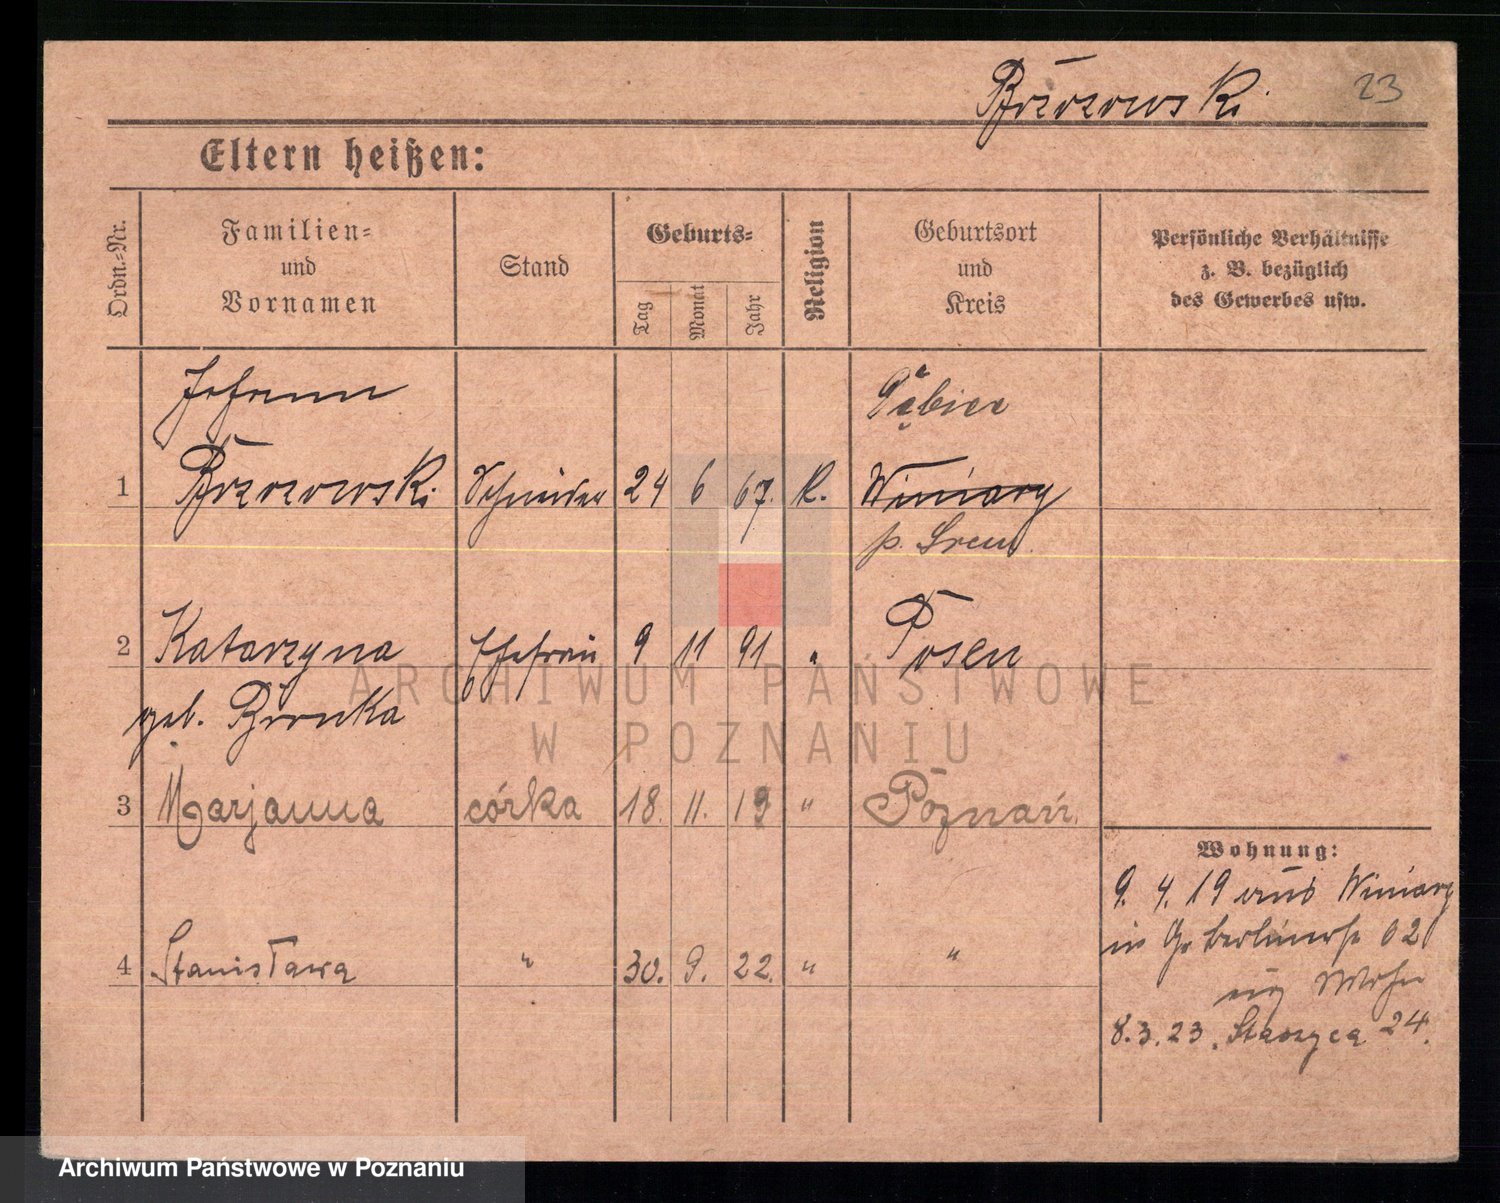 Brzozowski 23
Eltern heißen:
Ordn.-Nr.
Familien-
und
Vornamen
Stand
Geburts-
Tag
Monat
Jahr
Religion
Geburtsort
und
Kreis
Persönliche Verhältnisse
z. B. bezüglich
des Gewerbes usw.
Johann
1 Brzozowski Schneider 24 6 67. K. Winiary
p. Srem
2 Katarzyna Ehefrau 9 11 91 " Posen
geb.
3 Marjanna córka 18. 11. 19 " Poznań.
4 Stanisława " 30. 9. 22. " "
Wohnung:
9. 4. 19 aus Winiary
in Gr Berlinerstr
8.3.23. Staszyca 24.
ARCHIWUM PAŃSTWOWE
W POZNANIU
Archiwum Państwowe w Poznaniu